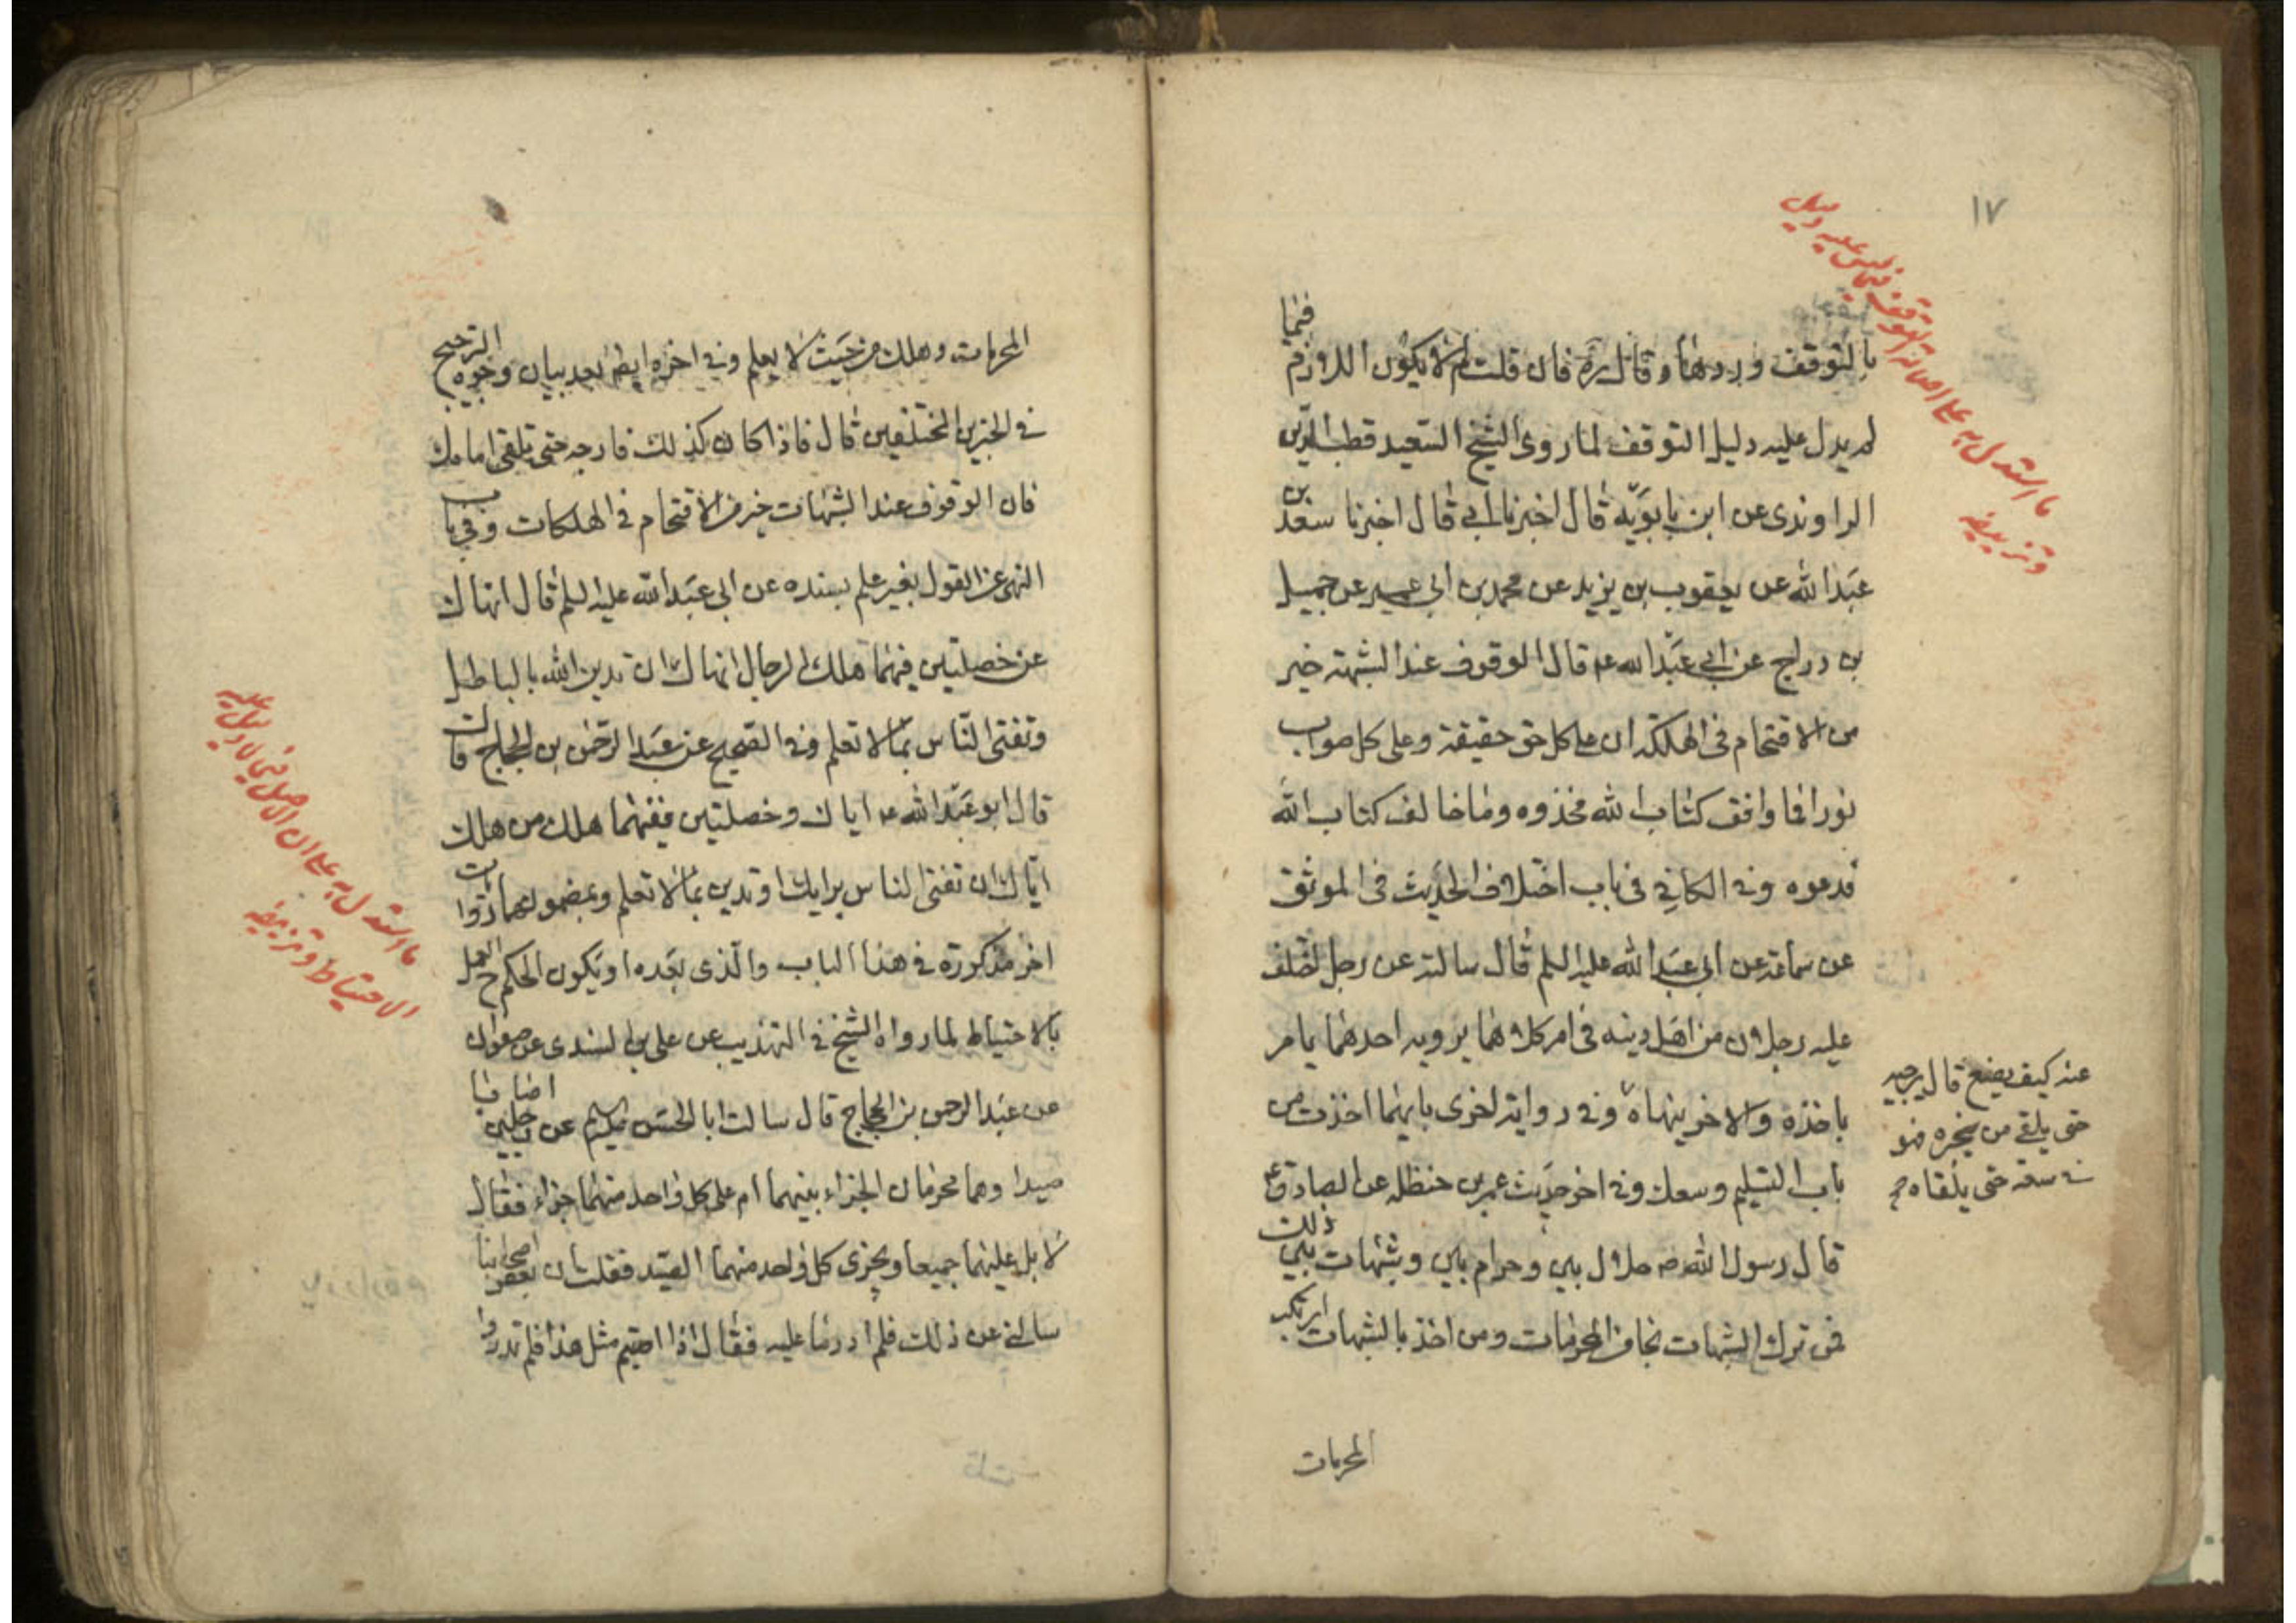 ١٧
ما استدل به على اصالة التوقف فيما ليس عليه دليل
وتزييفه
بالتوقف وردها وقال ره فان قلت لم لا يكون اللازم فيما
لم يدل عليه دليل التوقف لما روى الشيخ السعيد قطب الدين
الراوندى عن ابن بابويه قال اخبرنا ابى قال اخبرنا سعد بن
عبد الله عن يعقوب بن يزيد عن محمد بن ابى عمير عن جميل
بن دراج عن ابى عبد الله عه قال الوقوف عند الشبهة خير
من الاقتحام فى الهلكة ان على كل حق حقيقة وعلى كل صواب
نورا فما وافق كتاب الله فخذوه وما خالف كتاب الله
فدعوه وفى الكافى فى باب اختلاف الحديث فى الموثق
عن سماعة عن ابى عبد الله عليه السلم قال سالته عن رجل اختلف
عليه رجلان من اهل دينه فى امر كلاهما يرويه احدهما يامر
باخذه والاخر ينهاه وفى رواية اخرى بايهما اخذت من
باب التسليم وسعك وفى اخر حديث عمر بن حنظله عن الصادق ع
قال رسول الله ص حلال بين وحرام بين وشبهات بين ذلك
فمن ترك الشبهات نجا من المحرمات ومن اخذ بالشبهات ارتكب
عنه كيف يصنع قال يرجيه
حتى يلقى من يخبره فهو
فى سعة حتى يلقاه صح
المحرمات
المحرمات وهلك من حيث لا يعلم وفى اخره ايضا بعد بيان وجوه الترجيح
فى الخبرين المختلفين قال فاذا كان كذلك فارجه حتى تلقى امامك
فان الوقوف عند الشبهات خير من الاقتحام فى الهلكات وفى باب
النهى عن القول بغير علم بسنده عن ابى عبد الله عليه السلم قال انهاك
عن خصلتين فيهما هلك الرجال انهاك ان تدين الله بالباطل
وتفتى الناس بما لا تعلم وفى الصحيح عن عبد الرحمن بن الحجاج قالت
قال ابو عبد الله عه اياك وخصلتين ففيهما هلك من هلك
اياك ان تفتى الناس برايك او تدين بما لا تعلم وبمضمونهما روايات
اخر مذكورة فى هذا الباب والذى بعده او يكون الحكم ح العمل
بالاحتياط لما رواه الشيخ فى التهذيب عن على بن السندى عن صفوان
عن عبد الرحمن بن الحجاج قال سالت ابا الحسن عليه السلم عن رجلين اصابا
صيدا وهما محرمان الجزاء بينهما ام على كل واحد منهما جزاء فقال
لا بل عليهما جميعا ويجزى كل واحد منهما الصيد فقلت ان بعض اصحابنا
سالنى عن ذلك فلم ادر ما عليه فقال اذا اصبتم مثل هذا فلم تدروا
ما استدل به على ان الاصل فيما لا دليل عليه
الاحتياط وتزييفه